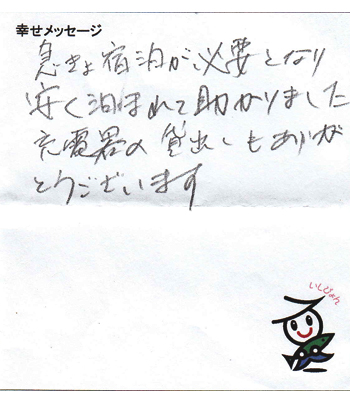 幸せメッセージ
急きょ宿泊が必要となり
安く泊まれて助かりました
充電器の貸出しもありが
とうございます
いしぴょん